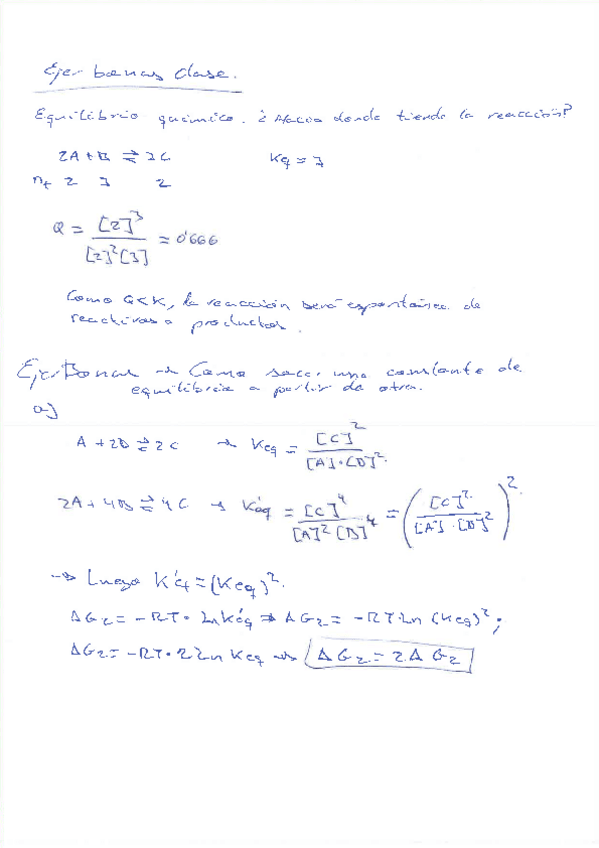 Ejer bonus clase.
Equilibrio químico. ¿Hacia donde tiende la reacción?
2A + B ⇌ 2C Keq = 7
n_t 2 3 2
Q = [2]^3 / [2]^2 [3] = 0'666
Como Q < K, la reacción será espontánea de
reactivos a productos.
Ejer Bonus → Como sacar una constante de
equilibrio a partir de otra.
a)
A + 2B ⇌ 2C → Keq = [C]^2 / [A]·[B]^2
2A + 4B ⇌ 4C → K'eq = [C]^4 / [A]^2 [B]^4 = ([C]^2 / [A]·[B]^2)^2
→ Luego K'eq = (Keq)^2.
ΔG2 = -RT · Ln K'eq ⇒ ΔG2 = -RT·Ln (Keq)^2;
ΔG2 = -RT·2 Ln Keq → ΔG2 = 2ΔG2